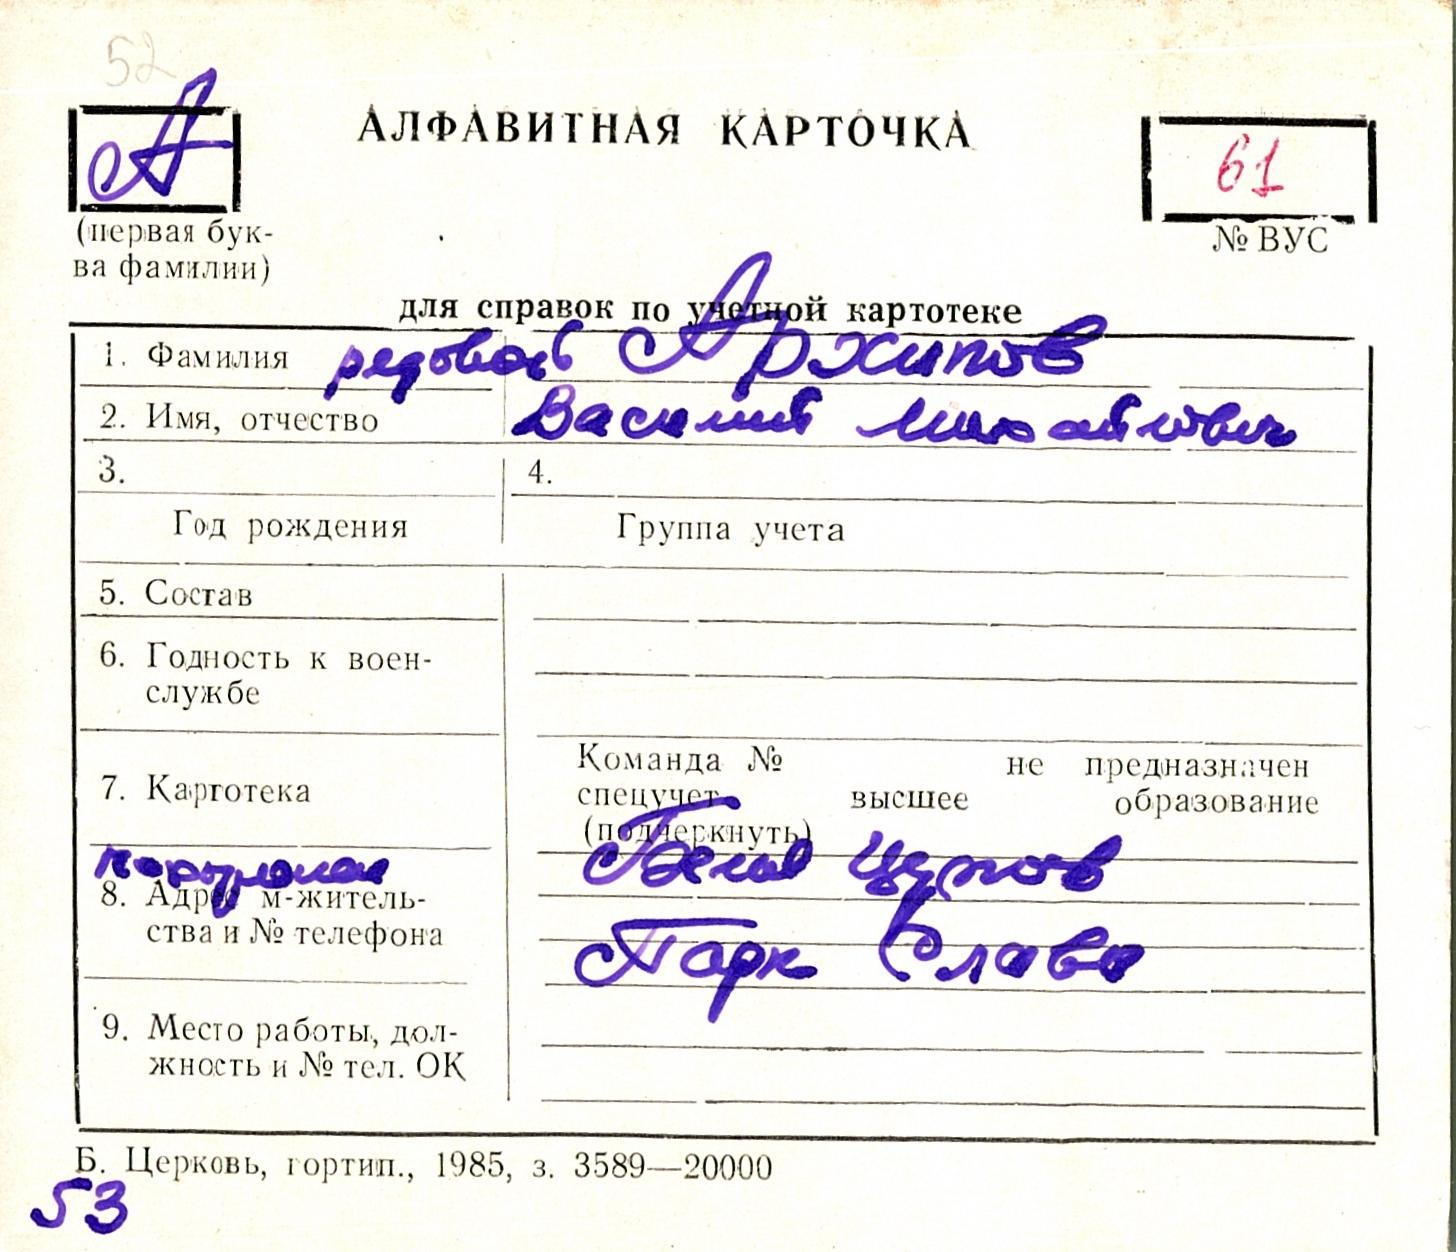 52
А
АЛФАВИТНАЯ КАРТОЧКА
61
(первая бук-
ва фамилии)
№ ВУС
для справок по учетной картотеке
1. Фамилия рядовой Архипов
2. Имя, отчество Василий Михайлович
3. 4.
Год рождения Группа учета
5. Состав
6. Годность к воен-
службе
7. Картотека
Команда № не предназначен
спецучет высшее образование
(подчеркнуть)
похоронен Белая Церковь
8. Адрес м-житель-
ства и № телефона
Парк Слава
9. Место работы, дол-
жность и № тел. ОК
Б. Церковь, гортип., 1985, з. 3589—20000
53